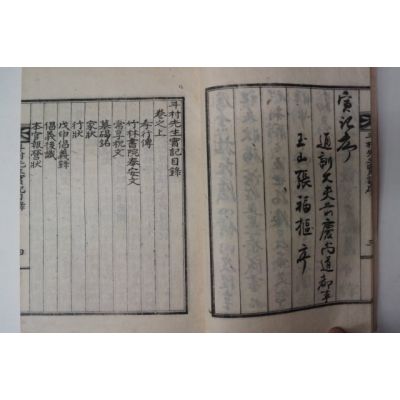 實記序
通訓大夫前慶尚道都事
玉山張福樞序
斗村先生實記目錄
卷之上
孝行傳
竹林書院奉安文
常享祝文
墓碣銘
家狀
行狀
戊申倡義錄
倡義後識
本官報營狀